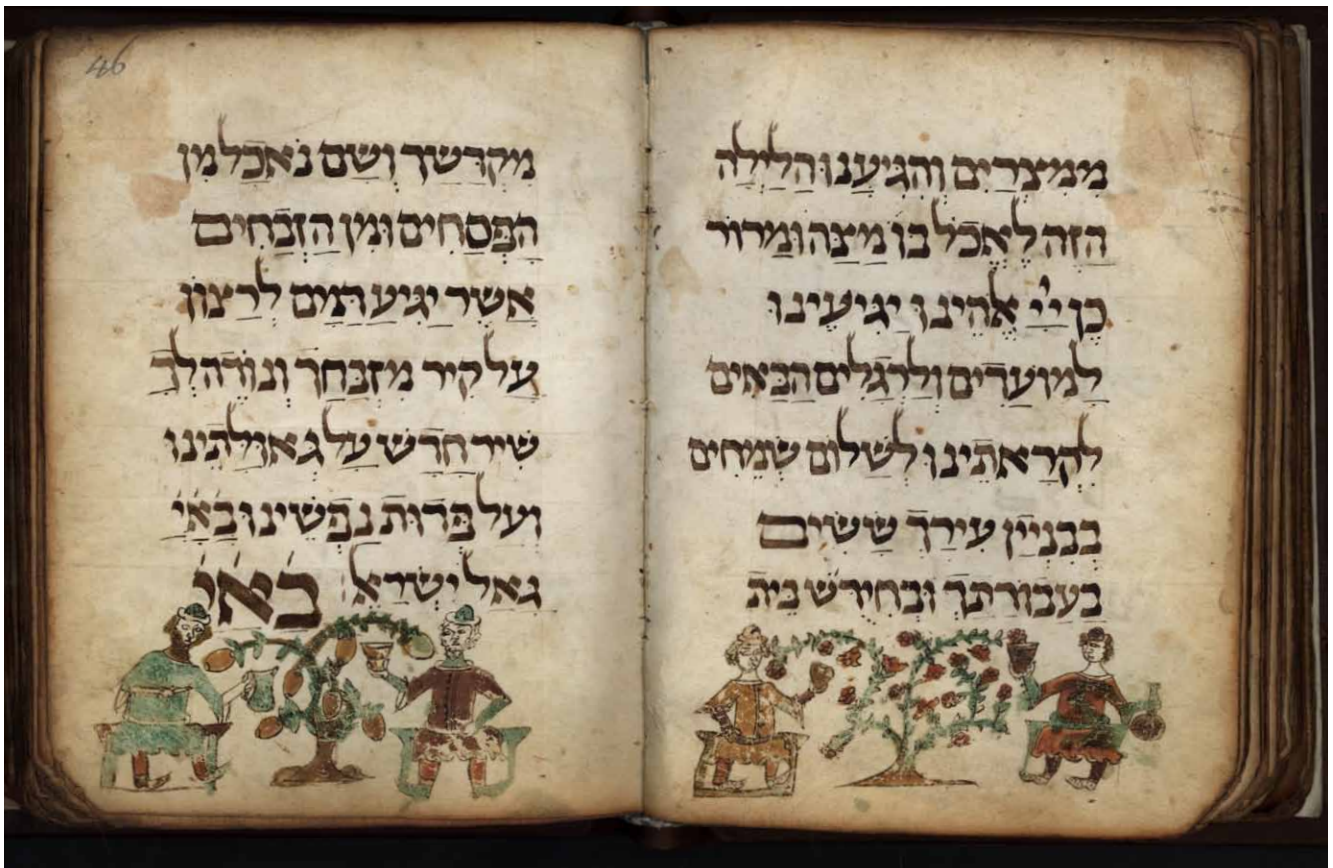 ממצרים והגיענו הלילה
הזה לאכל בו מצה ומרור
כן ייי אלהינו יגיעינו
למועדים ולרגלים הבאים
לקראתינו לשלום שמחים
בבנין עירך ששים
בעבודתך ובחידוש בית
46
מקדשך ושם נאכל מן
הפסחים ומן הזבחים
אשר יגיע לרצון
על קיר מזבחך ונודה לך
שיר חדש על גאולתינו
ועל פדות נפשינו באי
גאל ישראל: באי